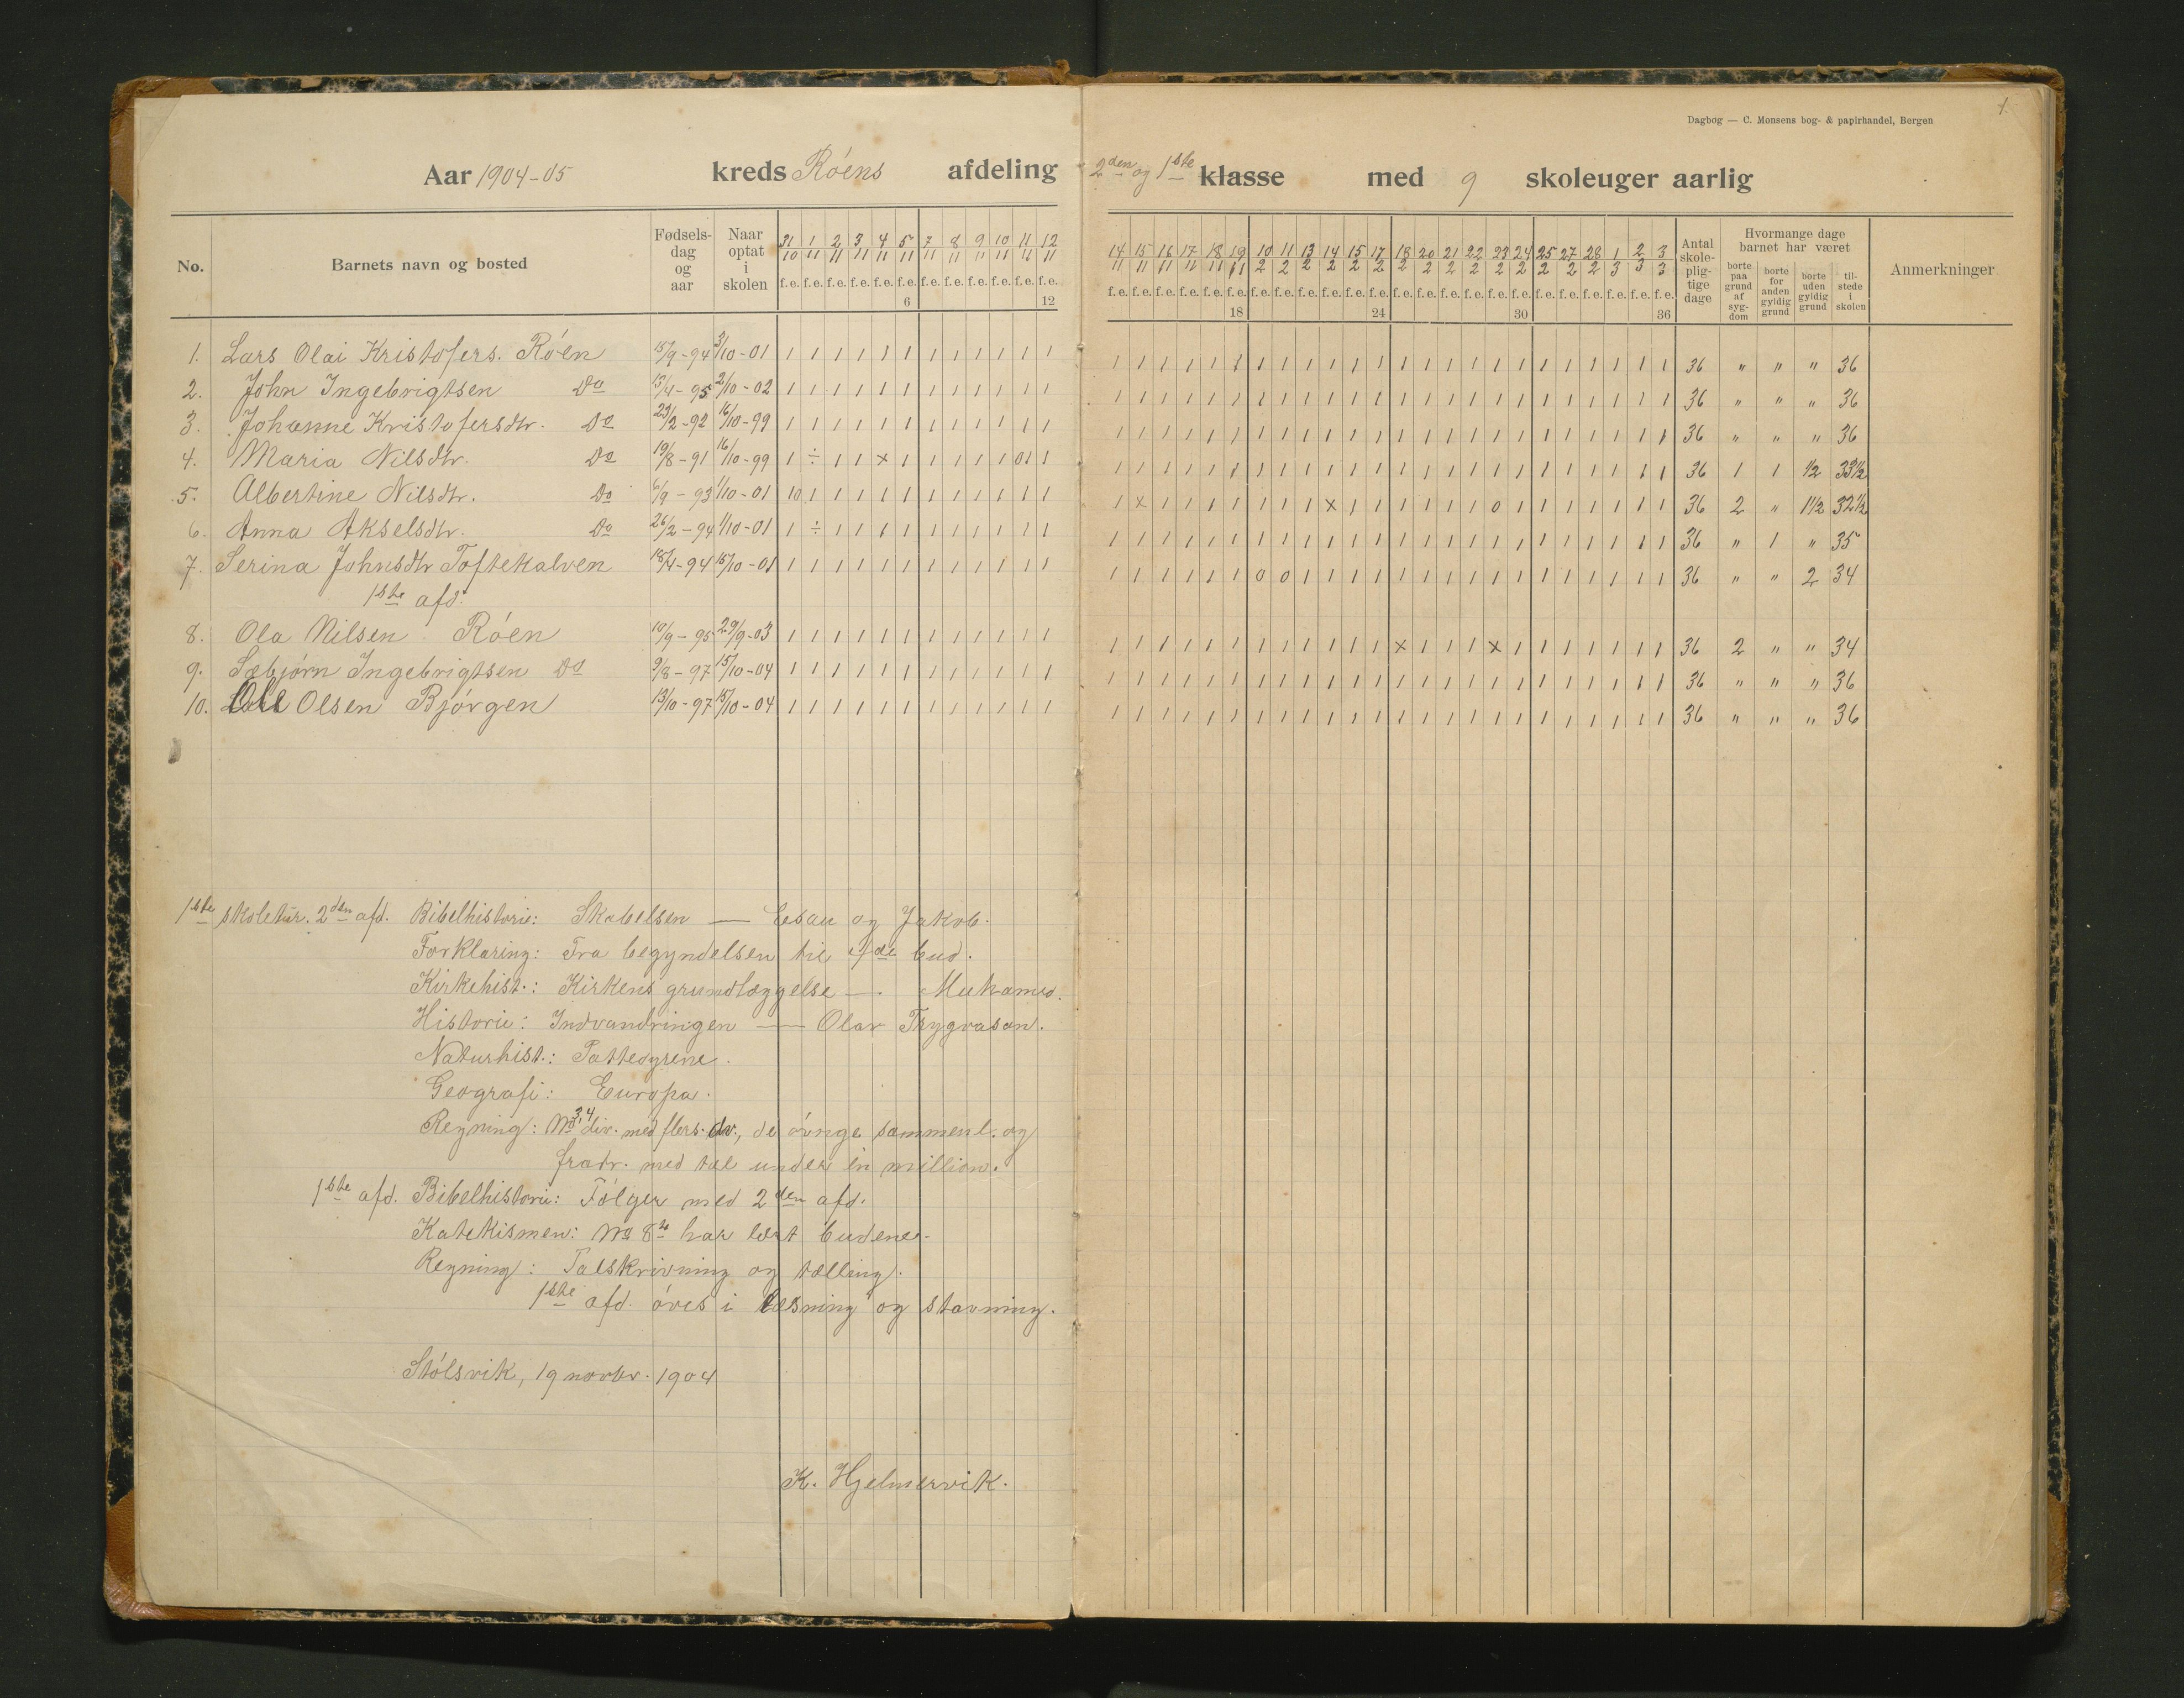 1.
Dagbog — C. Monsens bog- & papirhandel, Bergen
Aar 1904-05 kreds Róens afdeling 2den og 1ste klasse med 9 skoleuger aarlig
No. Barnets navn og bosted Fødsels-dag og aar Naar optat i skolen 31/10 1/11 2/11 3/11 4/11 5/11 7/11 8/11 9/11 10/11 11/11 12/11 14/11 15/11 16/11 17/11 18/11 19/11 10/2 11/2 13/2 14/2 15/2 17/2 18/2 20/2 21/2 22/2 23/2 24/2 25/2 27/2 28/2 1/3 2/3 3/3 Antal skole-plig-tige dage Hvormange dage barnet har været Anmerkninger
borte paa grund af syg-dom borte for anden gyldig grund borte uden gyldig grund til-stede i skolen
f.e. f.e. f.e. f.e. f.e. f.e. f.e. f.e. f.e. f.e. f.e. f.e. f.e. f.e. f.e. f.e. f.e. f.e. f.e. f.e. f.e. f.e. f.e. f.e. f.e. f.e. f.e. f.e. f.e. f.e. f.e. f.e. f.e. f.e. f.e. f.e.
6 12 18 24 30 36
1. Lars Olai Kristofers. Róen 15/9-94 3/10-01 1 1 1 1 1 1 1 1 1 1 1 1 1 1 1 1 1 1 1 1 1 1 1 1 1 1 1 1 1 1 1 1 1 1 1 1 36 " " " 36
2. John Ingebrigtsen Do 13/4-95 2/10-02 1 1 1 1 1 1 1 1 1 1 1 1 1 1 1 1 1 1 1 1 1 1 1 1 1 1 1 1 1 1 1 1 1 1 1 1 36 " " " 36
3. Johanne Kristofersdtr. Do 29/2-92 16/10-99 1 1 1 1 1 1 1 1 1 1 1 1 1 1 1 1 1 1 1 1 1 1 1 1 1 1 1 1 1 1 1 1 1 1 1 1 36 " " " 36
4. Maria Nilsdtr. Do 19/8-91 16/10-99 1 ÷ 1 1 x 1 1 1 1 1 01 1 1 1 1 1 1 1 1 1 1 1 1 1 1 1 1 1 1 1 1 1 1 1 1 1 36 1 1 1/2 33 1/2
5. Albertine Nilsdtr. Do 6/9-93 1/10-01 10 1 1 1 1 1 1 1 1 1 1 1 1 x 1 1 1 1 1 1 1 x 1 1 1 1 1 1 0 1 1 1 1 1 1 1 36 2 " 1 1/2 32 1/2
6. Anna Akselsdtr. Do 26/2-94 1/10-01 1 ÷ 1 1 1 1 1 1 1 1 1 1 1 1 1 1 1 1 1 1 1 1 1 1 1 1 1 1 1 1 1 1 1 1 1 1 36 " 1 " 35
7. Serina Johnsdtr Toftekalven 18/4-94 15/10-01 1 1 1 1 1 1 1 1 1 1 1 1 1 1 1 1 1 1 0 0 1 1 1 1 1 1 1 1 1 1 1 1 1 1 1 1 36 " " 2 34
1ste afd.
8. Ola Nilsen Róen 10/9-95 29/9-03 1 1 1 1 1 1 1 1 1 1 1 1 1 1 1 1 1 1 1 1 1 1 1 1 x 1 1 1 x 1 1 1 1 1 1 1 36 2 " " 34
9. Sæbjórn Ingebrigtsen Do 9/8-97 15/10-04 1 1 1 1 1 1 1 1 1 1 1 1 1 1 1 1 1 1 1 1 1 1 1 1 1 1 1 1 1 1 1 1 1 1 1 1 36 " " " 36
10. Ole Olsen Bjórgen 13/10-97 15/10-04 1 1 1 1 1 1 1 1 1 1 1 1 1 1 1 1 1 1 1 1 1 1 1 1 1 1 1 1 1 1 1 1 1 1 1 1 36 " " " 36
1ste skoletur. 2den afd. Bibelhistorie: Skabelsen — Esau og Jakob.
Forklaring: Fra begyndelsen til 4de bud.
Kirkehist.: Kirkens grundlæggelse — Muhamed.
Historie: Indvandringen — Olav Trygvason.
Naturhist.: Pattedyrene.
Geografi: Europa.
Regning: No 3, 4 div. med flers. div., de óvrige sammenl. og
fradr. med tal under en million.
1ste afd. Bibelhistorie: Fólger med 2den afd.
Katekismen: No 8 har lært budene.
Regning: Talskrivning og tælling.
1ste afd. óves i læsning og stavning.
Stólsvik, 19 novbr. 1904
K. Hjelmervik.